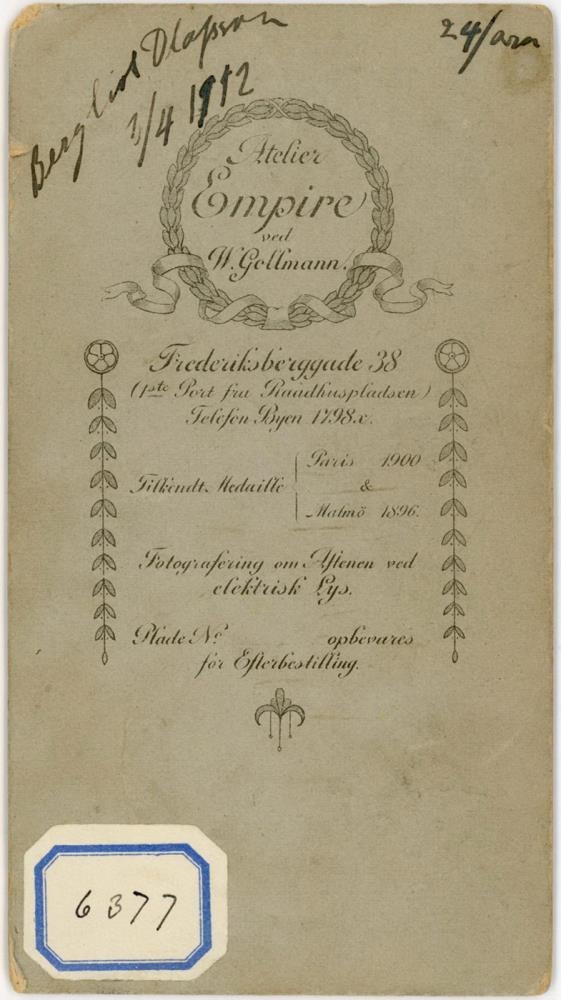 Bergliot Olafsson
3/4 1912
24/ara
Atelier
Empire
ved
W. Gollmann.
Frederiksberggade 38
(1ste Port fra Raadhuspladsen)
Telefon Byen 1798x.
Tilkendt Medaille
Paris 1900
&
Malmö 1896.
Fotografering om Aftenen ved
elektrisk Lys.
Plade No opbevares
for Efterbestilling.
6377